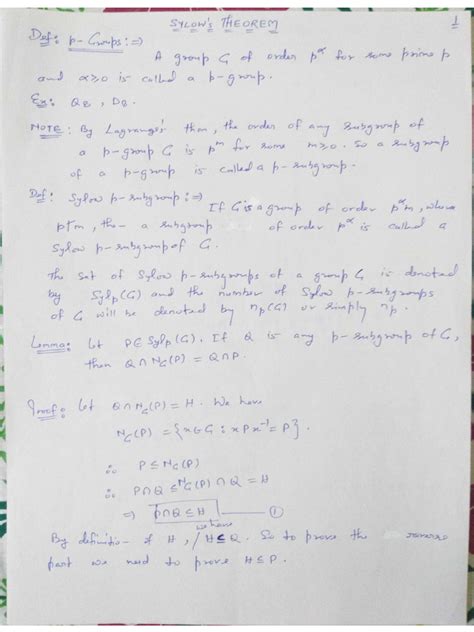 SYLOW'S THEOREM 1
Def: p-Groups:⇒
A group G of order p^α for some prime p
and α≥0 is called a p-group.
Ex: Q8, D8.
NOTE: By Lagrange's thm, the order of any subgroup of
a p-group G is p^m for some m≥0. So a subgroup
of a p-group is called a p-subgroup.
Def: Sylow p-subgroup:⇒
If G is a group of order p^α m, where
p∤m, then a subgroup of order p^α is called a
Sylow p-subgroup of G.
The set of Sylow p-subgroups of a group G is denoted
by Sylp(G) and the number of Sylow p-subgroups
of G will be denoted by np(G) or simply np.
Lemma: Let P∈Sylp(G). If Q is any p-subgroup of G,
then Q∩NG(P) = Q∩P.
Proof: Let Q∩NG(P) = H. We have
NG(P) = {x∈G : xPx⁻¹ = P}.
∴ P ≤ NG(P)
∴ P∩Q ≤ NG(P)∩Q = H
⇒ P∩Q ≤ H — ①
we have
By definition of H, / H≤Q. So to prove the reverse
part we need to prove H≤P.